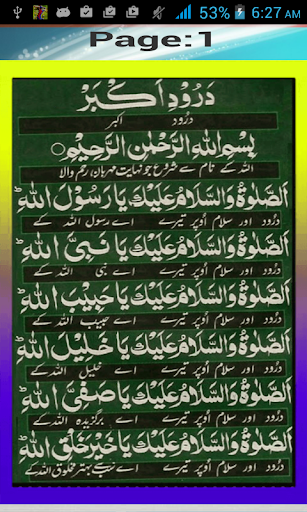 53% 6:27 AM
Page:1
دُرُودِ اَكْبَرْ
درُود اکبر
بِسْمِ اللهِ الرَّحْمٰنِ الرَّحِيْمِ
اللہ کے نام سے شروع جو نہایت مہربان رحم والا
اَلصَّلٰوةُ وَالسَّلَامُ عَلَيْكَ يَا رَسُوْلَ اللهِ
درُود اور سلام اُوپر تیرے اے رسول اللہ کے
اَلصَّلٰوةُ وَالسَّلَامُ عَلَيْكَ يَا نَبِىَّ اللهِ
درُود اور سلام اُوپر تیرے اے نبی اللہ کے
اَلصَّلٰوةُ وَالسَّلَامُ عَلَيْكَ يَا حَبِيْبَ اللهِ
درُود اور سلام اُوپر تیرے اے حبیب اللہ کے
اَلصَّلٰوةُ وَالسَّلَامُ عَلَيْكَ يَا خَلِيْلَ اللهِ
درُود اور سلام اُوپر تیرے اے خلیل اللہ کے
اَلصَّلٰوةُ وَالسَّلَامُ عَلَيْكَ يَا صَفِىَّ اللهِ
درُود اور سلام اُوپر تیرے اے برگزیدہ اللہ کے
اَلصَّلٰوةُ وَالسَّلَامُ عَلَيْكَ يَا خَيْرَ خَلْقِ اللهِ
درُود اور سلام اُوپر تیرے اے بہتر مخلوق اللہ کے